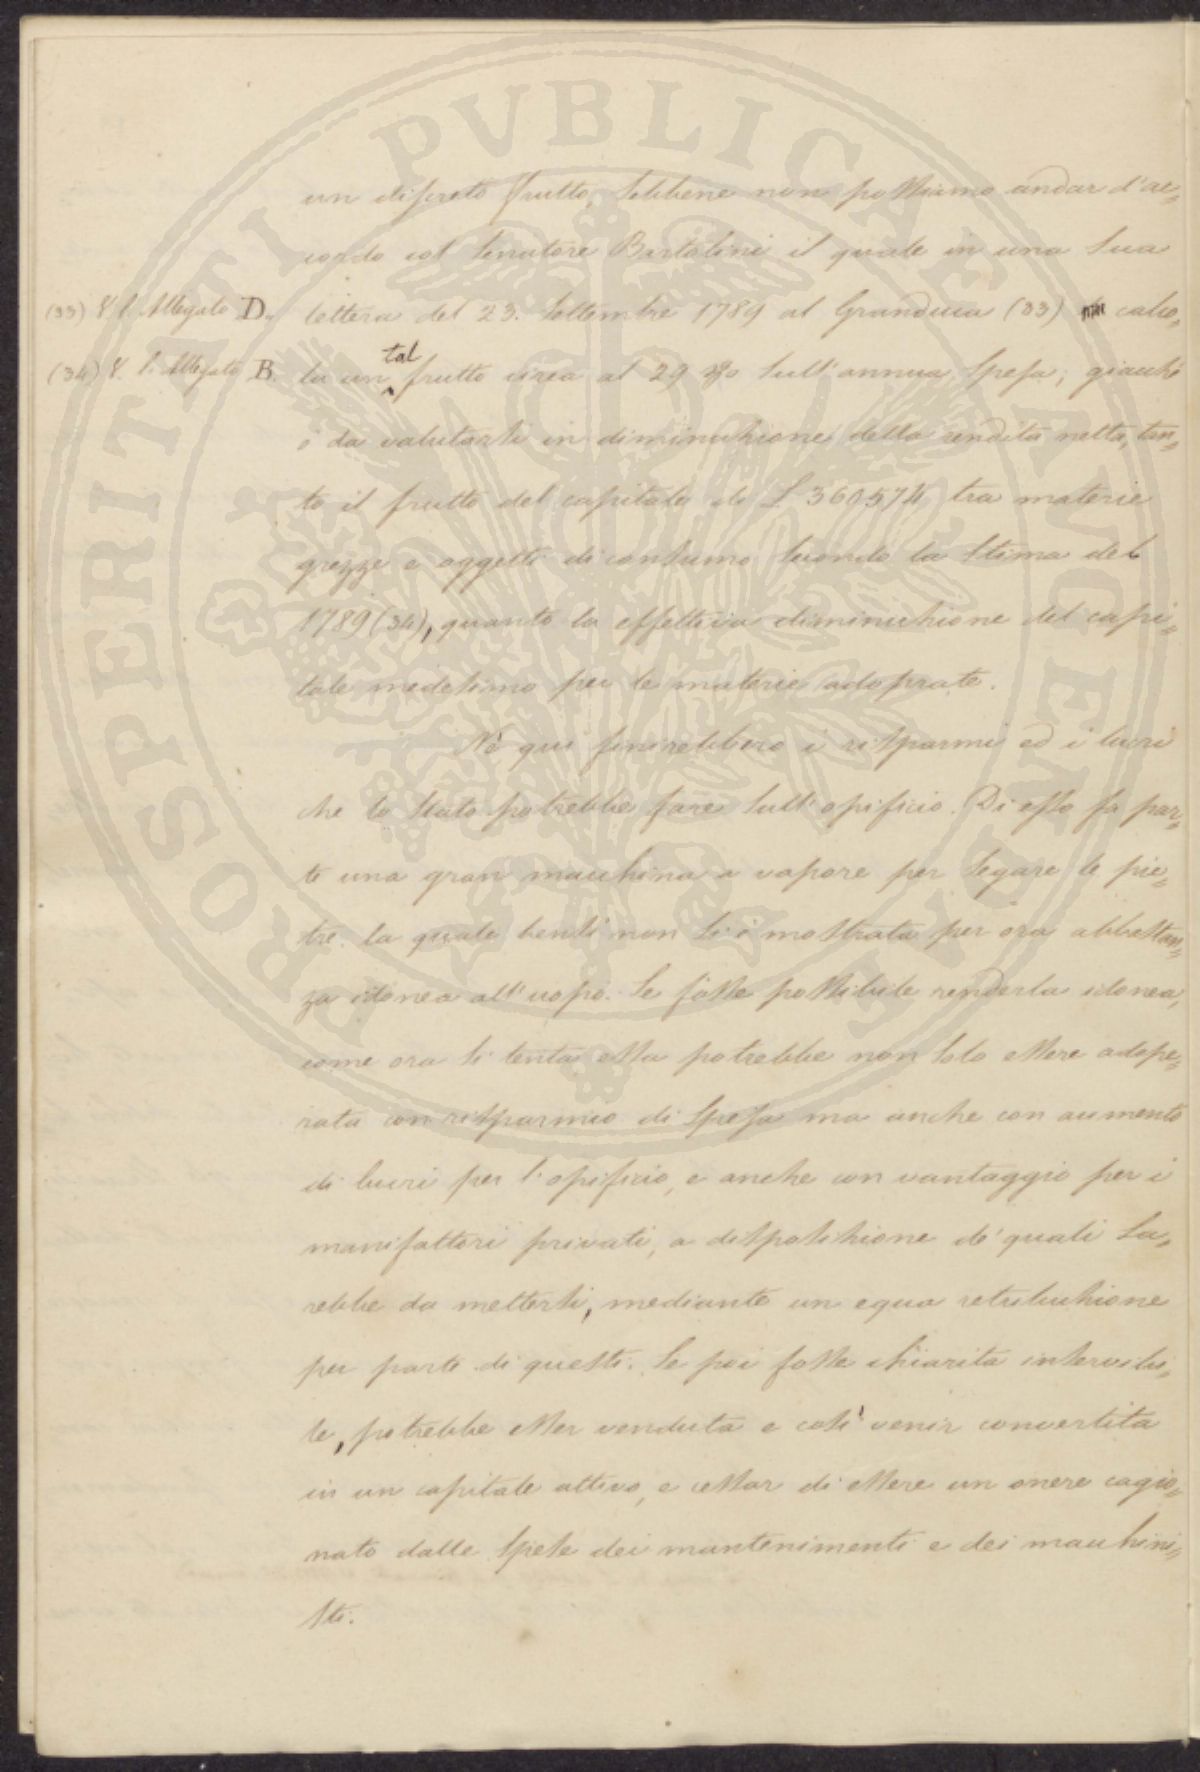 PROSPERITATI PVBLICAE AVGENDAE
un discreto frutto, sebbene non possiamo andar d'ac=
cordo col Senatore Bartolini il quale in una sua
(33) V. l. Allegato D. lettera del 23. Settembre 1789 al Granduca (33) calco=
(34) V. l. Allegato B. la un tal frutto circa al 29 % sull'annua spesa; giacché
è da valutarsi in diminuzione della rendita netta, tan=
to il frutto del capitale di L 360574 tra materie
grezze e oggetti di consumo secondo la stima del
1789 (34), quanto la effettiva diminuzione del capi=
tale medesimo per le materie adoprate.
Nè qui finirebbero i risparmi ed i lucri
che lo Stato potrebbe fare sull'opificio. Di esso fa par=
te una gran macchina a vapore per segare le pie=
tre la quale bensì non si è mostrata per ora abbastan=
za idonea all'uopo. Se fosse possibile renderla idonea,
come ora si tenta essa potrebbe non solo essere adope=
rata con risparmio di spesa ma anche con aumento
di lucri per l'opificio, e anche con vantaggio per i
manifattori privati, a disposizione de' quali sa=
rebbe da mettersi, mediante un equa retribuzione
per parte di questi. Se poi fosse chiarita inservibi=
le, potrebbe esser venduta e così venir convertita
in un capitale attivo, e cessar di essere un onere cagio=
nato dalle spese dei mantenimenti e dei macchini=
sti.